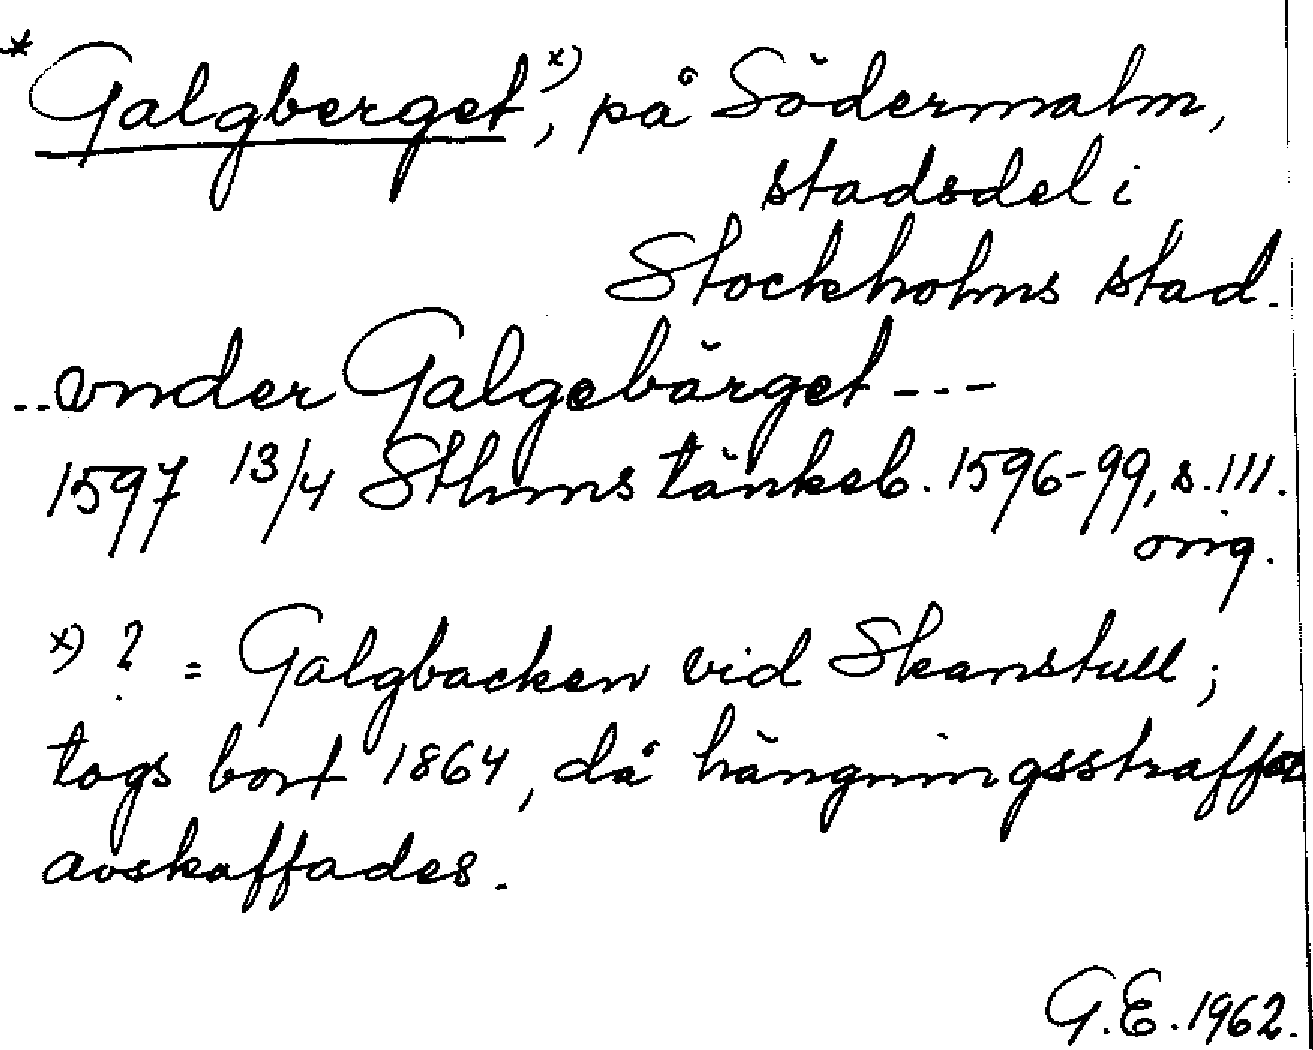 * Galgberget x), på Södermalm,
stadsdel i
Stockholms stad.
..vnder Galgebärget ---
1597 13/4 Sthms tänkeb. 1596-99, s. 111.
orig.
x) ? = Galgbacken vid Skanstull;
togs bort 1864, då hängningsstraffet
avskaffades.
G.E. 1962.